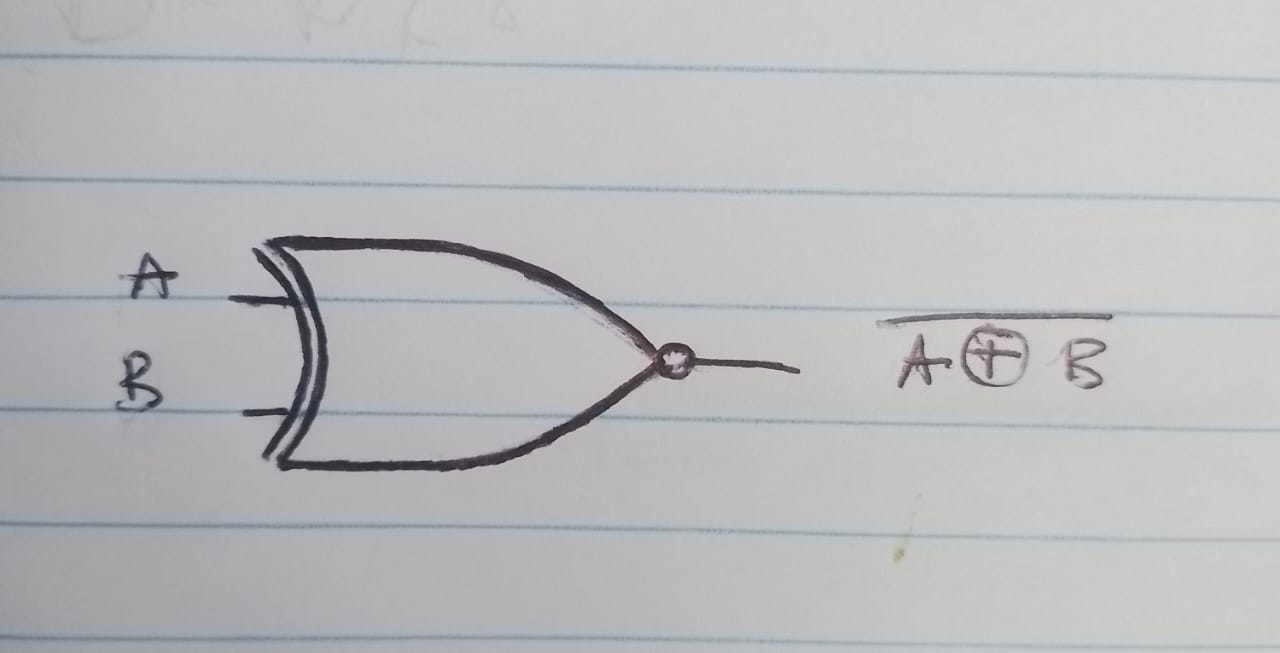 A
B
$\overline{A \oplus B}$